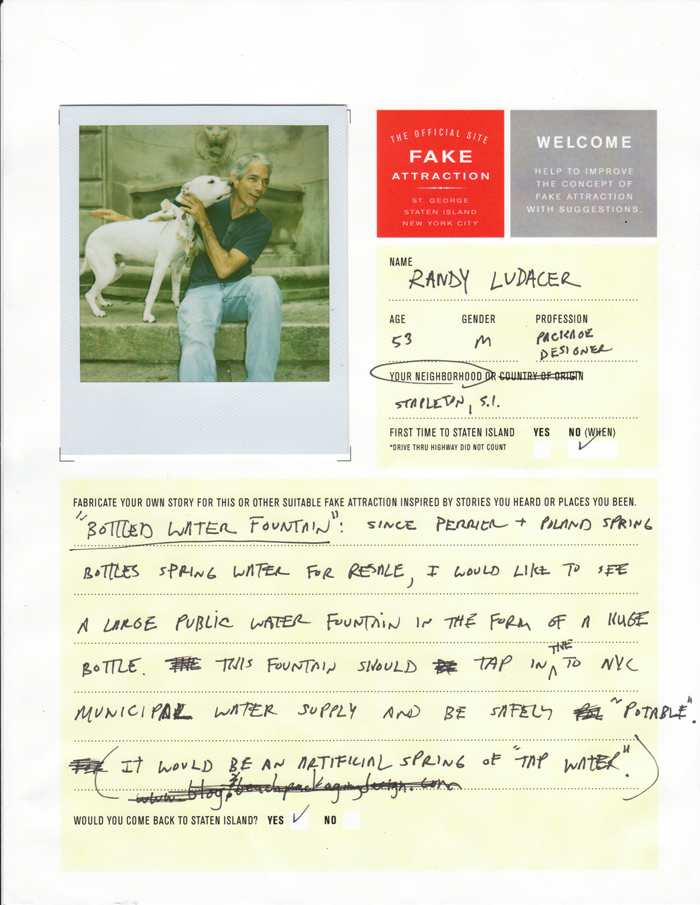 THE OFFICIAL SITE
FAKE
ATTRACTION
ST. GEORGE
STATEN ISLAND
NEW YORK CITY
WELCOME
HELP TO IMPROVE
THE CONCEPT OF
FAKE ATTRACTION
WITH SUGGESTIONS.
NAME
RANDY LUDACER
AGE GENDER PROFESSION
53 M PACKAGE
DESIGNER
YOUR NEIGHBORHOOD OR COUNTRY OF ORIGIN
STAPLETON, S.I.
FIRST TIME TO STATEN ISLAND YES NO (WHEN)
*DRIVE THRU HIGHWAY DID NOT COUNT
FABRICATE YOUR OWN STORY FOR THIS OR OTHER SUITABLE FAKE ATTRACTION INSPIRED BY STORIES YOU HEARD OR PLACES YOU BEEN.
"BOTTLED WATER FOUNTAIN": SINCE PERRIER + POLAND SPRING
BOTTLES SPRING WATER FOR RESALE, I WOULD LIKE TO SEE
A LARGE PUBLIC WATER FOUNTAIN IN THE FORM OF A HUGE
BOTTLE. THIS FOUNTAIN SHOULD TAP IN THE TO NYC
MUNICIPAL WATER SUPPLY AND BE SAFELY "POTABLE".
(IT WOULD BE AN ARTIFICIAL SPRING OF "TAP WATER".)
www.blog.beachpackagingdesign.com
WOULD YOU COME BACK TO STATEN ISLAND? YES NO